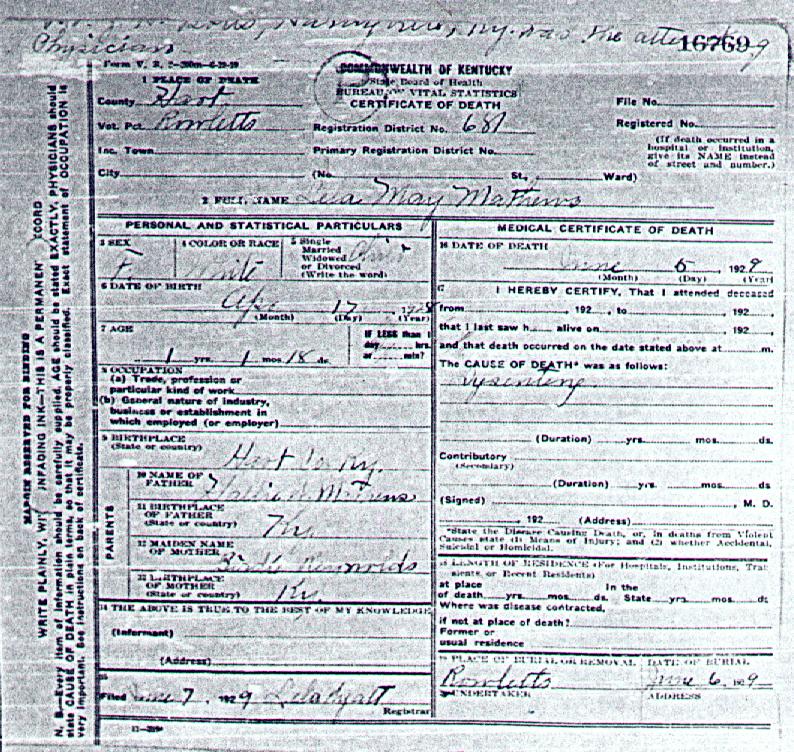 Hammonville, Ky. was the attending
Physician
16769
Form V. S.
COMMONWEALTH OF KENTUCKY
State Board of Health
BUREAU OF VITAL STATISTICS
CERTIFICATE OF DEATH
1 PLACE OF DEATH
County Hart
Vot. Pct Rowletts
Inc. Town
City
Registration District No. 681
Primary Registration District No.
(No. St., Ward)
File No.
Registered No.
(If death occurred in a
hospital or institution,
give its NAME instead
of street and number.)
2 FULL NAME Lela May Mathews
PERSONAL AND STATISTICAL PARTICULARS
3 SEX
F.
4 COLOR OR RACE
White
5 Single
Married
Widowed
or Divorced
(Write the word)
Child
6 DATE OF BIRTH
Apr 17 1928
(Month) (Day) (Year)
7 AGE
1 yrs. 1 mos. 18 ds.
IF LESS than 1
day hrs.
or min?
8 OCCUPATION
(a) Trade, profession or
particular kind of work
(b) General nature of industry,
business or establishment in
which employed (or employer)
9 BIRTHPLACE
(State or country)
Hart Co Ky.
PARENTS
10 NAME OF
FATHER
11 BIRTHPLACE
OF FATHER
(State or country)
Ky.
12 MAIDEN NAME
OF MOTHER
Birdie Reynolds
13 BIRTHPLACE
OF MOTHER
(State or country)
Ky.
14 THE ABOVE IS TRUE TO THE BEST OF MY KNOWLEDGE
(Informant)
(Address)
15
Filed June 7, 1929 Lela Dyatt
Registrar
MEDICAL CERTIFICATE OF DEATH
16 DATE OF DEATH
June 5, 1929
(Month) (Day) (Year)
17 I HEREBY CERTIFY, That I attended deceased
from , 192 , to , 192 ,
that I last saw h alive on , 192 ,
and that death occurred on the date stated above at m.
The CAUSE OF DEATH* was as follows:
Dysentery
(Duration) yrs. mos. ds.
Contributory
(Secondary)
(Duration) yrs. mos. ds
(Signed) , M. D.
, 192 (Address)
*State the Disease Causing Death, or, in deaths from Violent
Causes state (1) Means of Injury; and (2) whether Accidental,
Suicidal or Homicidal.
18 LENGTH OF RESIDENCE (For Hospitals, Institutions, Transients, or Recent Residents)
at place In the
of death yrs. mos. ds. State yrs. mos. ds
Where was disease contracted,
if not at place of death?
Former or
usual residence
19 PLACE OF BURIAL OR REMOVAL
Rowletts
DATE OF BURIAL
June 6, 1929
20 UNDERTAKER
ADDRESS
MARGIN RESERVED FOR BINDING
WRITE PLAINLY, WITH UNFADING INK—THIS IS A PERMANENT RECORD
N. B.—Every item of information should be carefully supplied. AGE should be stated EXACTLY. PHYSICIANS should
state CAUSE OF DEATH in plain terms, so that it may be properly classified. Exact statement of OCCUPATION is
very important. See instructions on back of certificate.